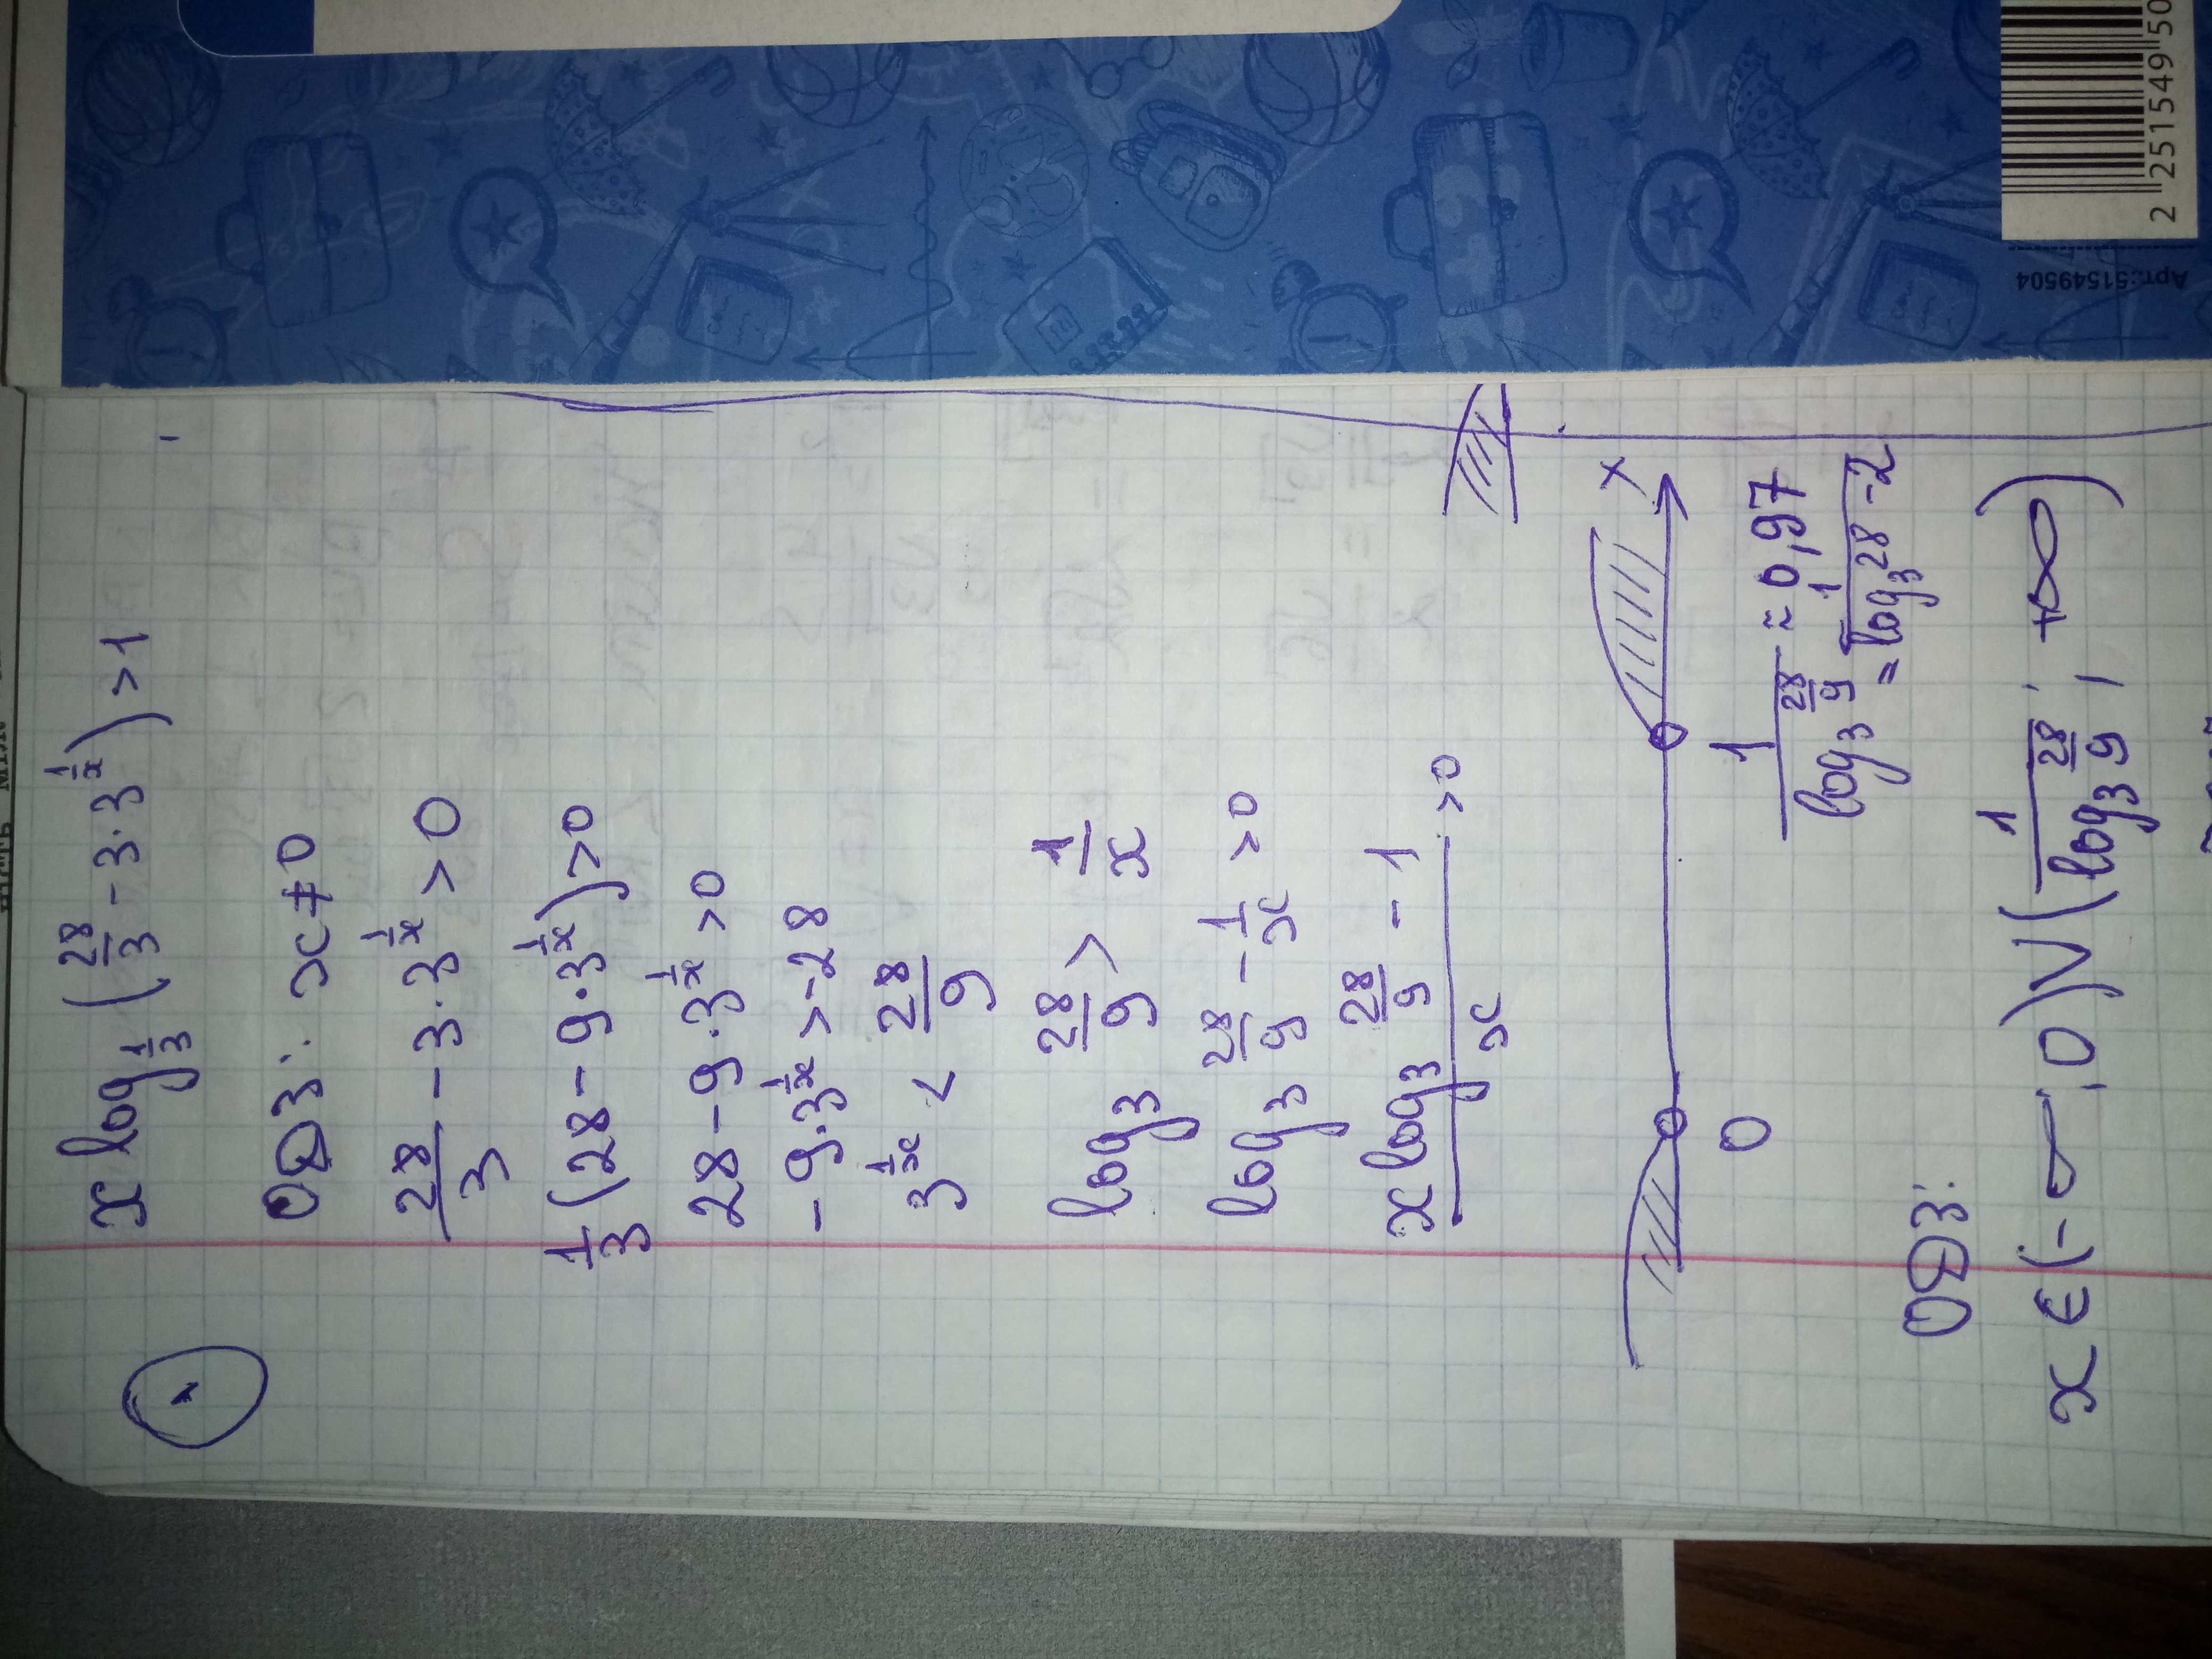 1
x log_{1/3} (28/3 - 3·3^{1/x}) > 1
ОДЗ: x ≠ 0
28/3 - 3·3^{1/x} > 0
1/3 (28 - 9·3^{1/x}) > 0
28 - 9·3^{1/x} > 0
-9·3^{1/x} > -28
3^{1/x} < 28/9
log_3 28/9 > 1/x
log_3 28/9 - 1/x > 0
(x log_3 28/9 - 1)/x > 0
x
0
1/(log_3 28/9) ≈ 0,97
= 1/(log_3 28 - 2)
ОДЗ:
x ∈ (-∞; 0) ∪ (1/(log_3 28/9); +∞)
2 251549 50
Арт.:51549504